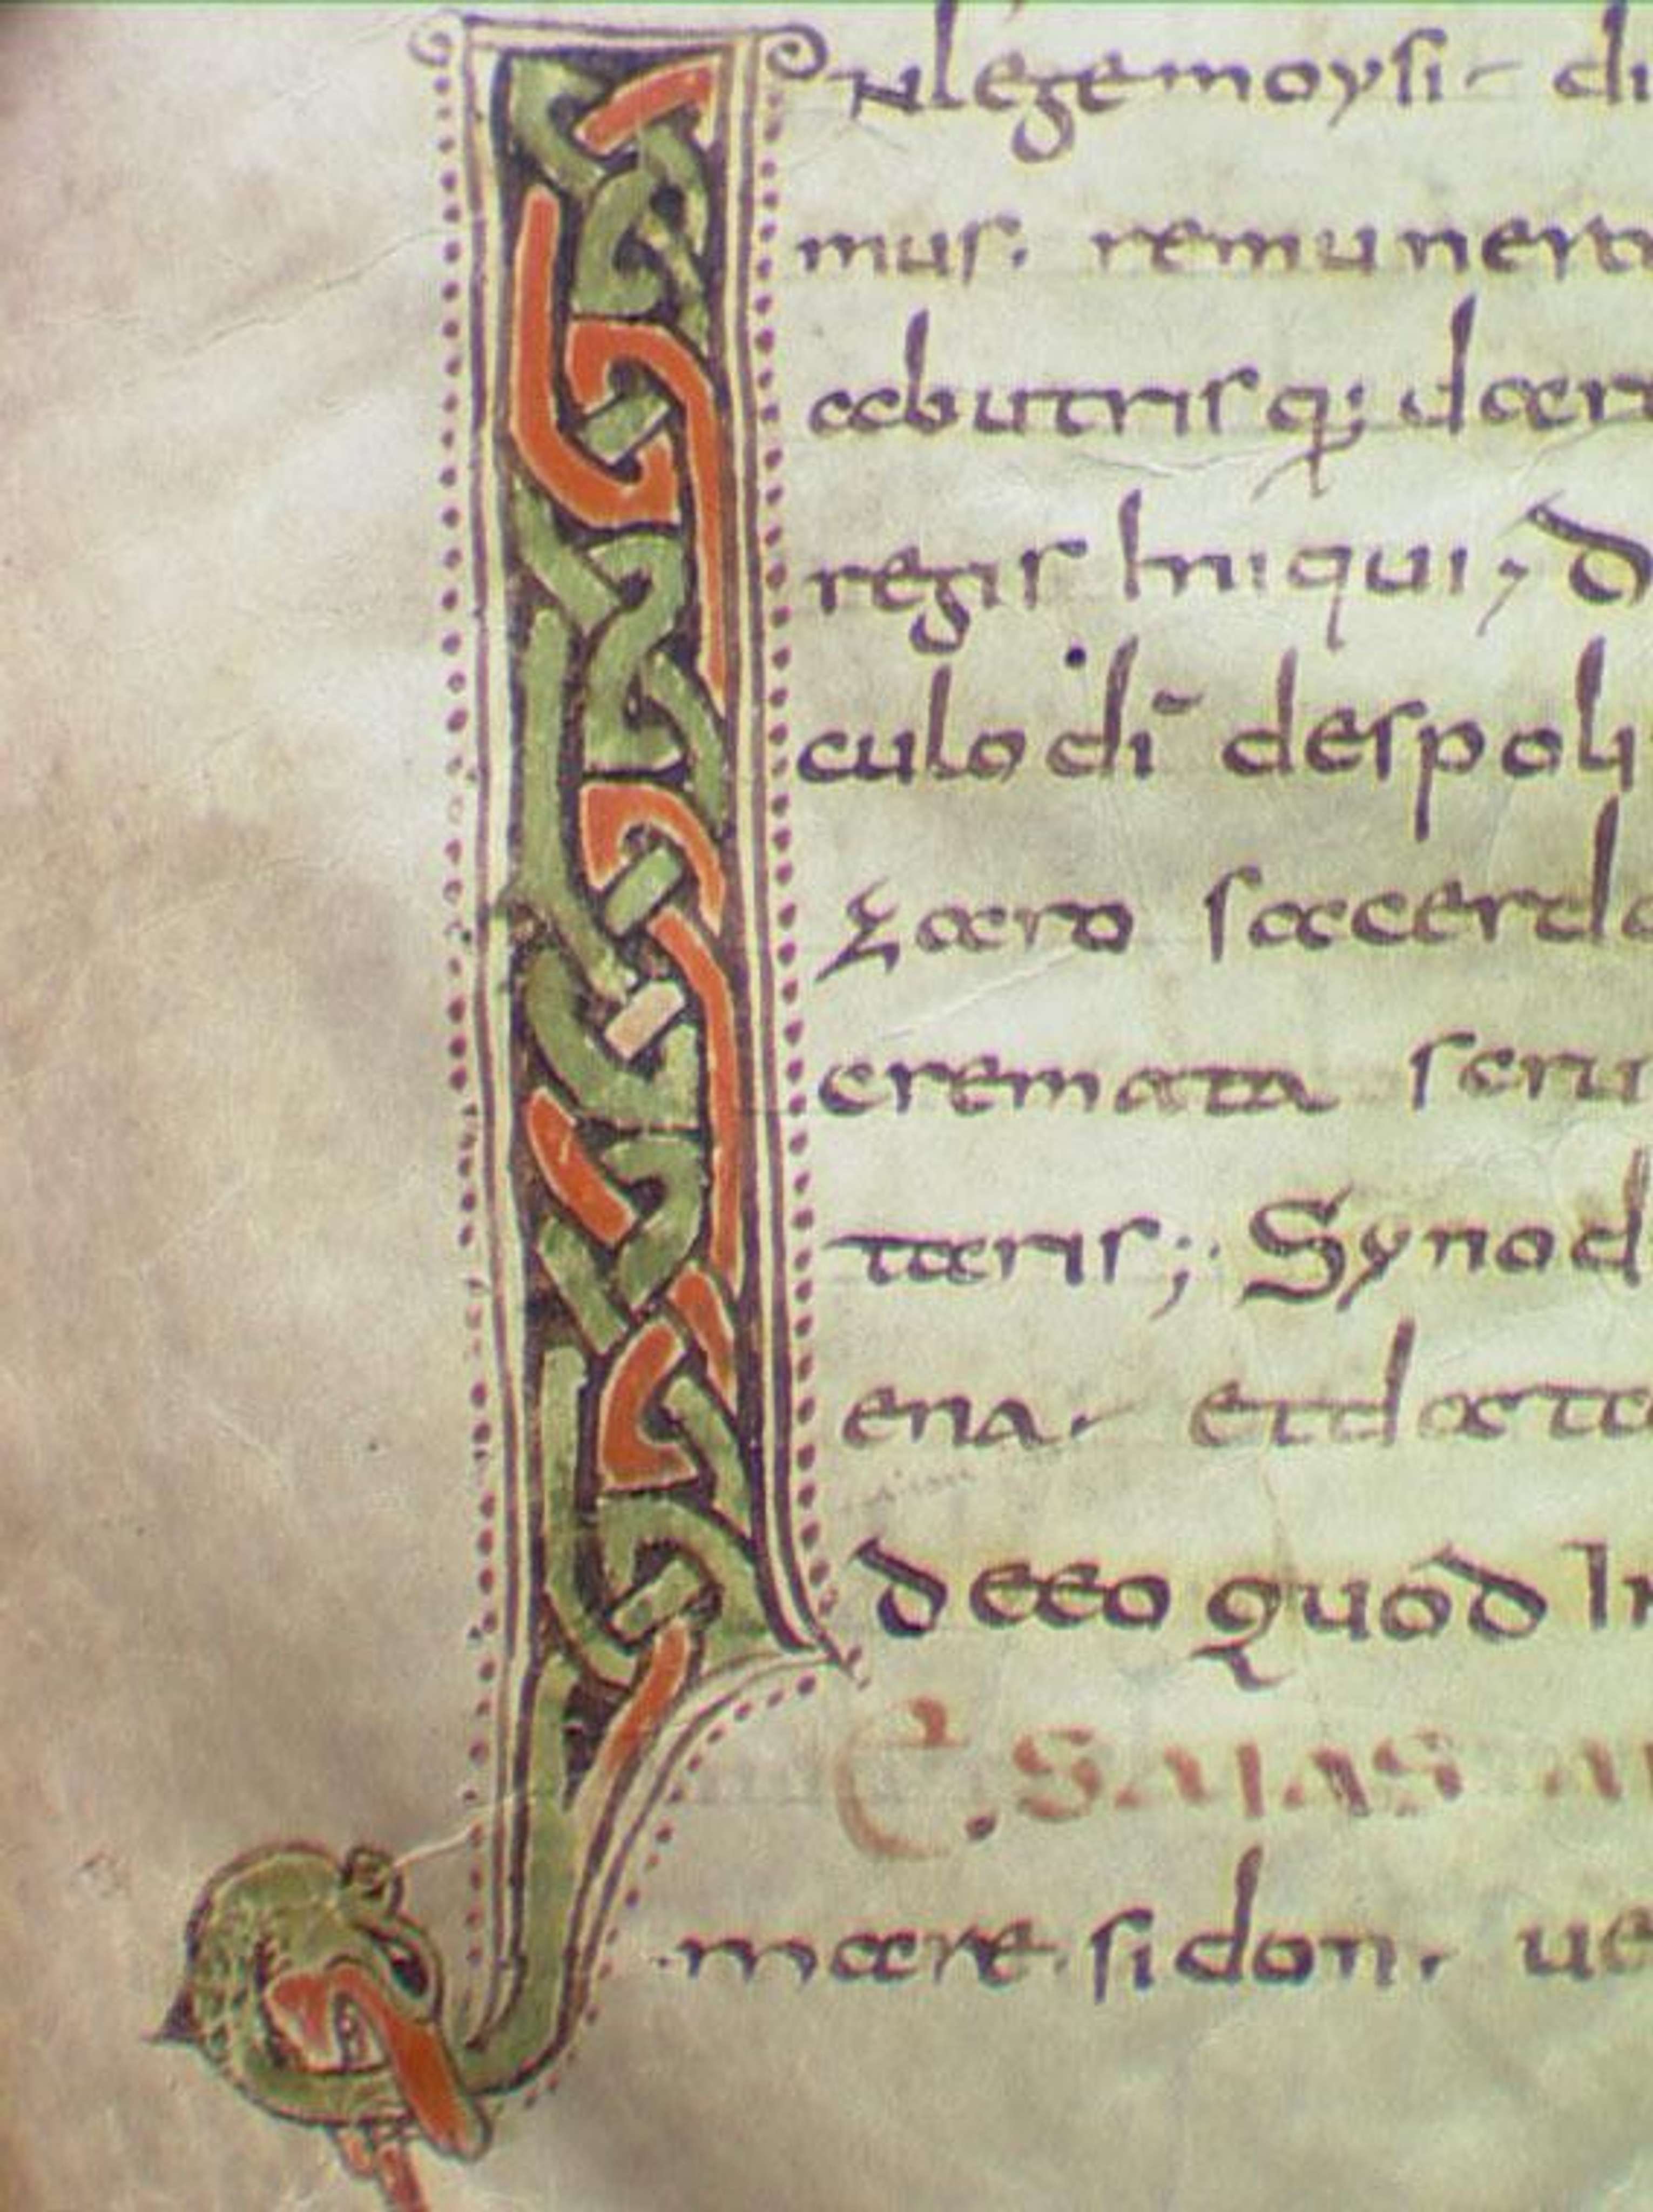 INlegemoysi di
mus. remunera
abutrisq; daem
regis Iniqui, D
culo di despoli
zaro sacerdo
cremata scru
taris; Synod
ena. etdatta
deeo quod In
ESAIAS
mare sidon. ue